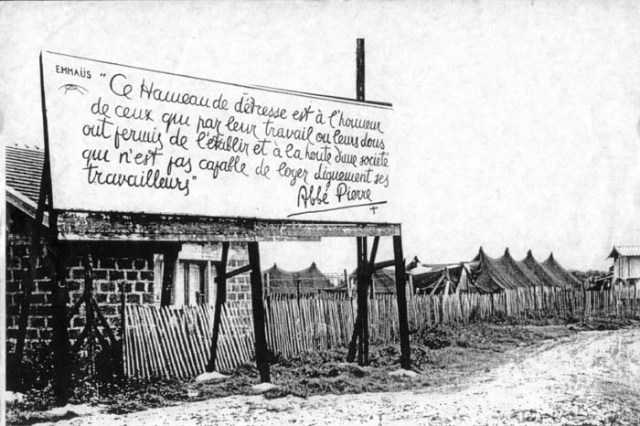 EMMAÜS
"Ce Hameau de détresse est à l'honneur
de ceux qui par leur travail ou leurs dons
ont permis de l'établir et à la honte d'une société
qui n'est pas capable de loger dignement ses
travailleurs"
Abbé Pierre